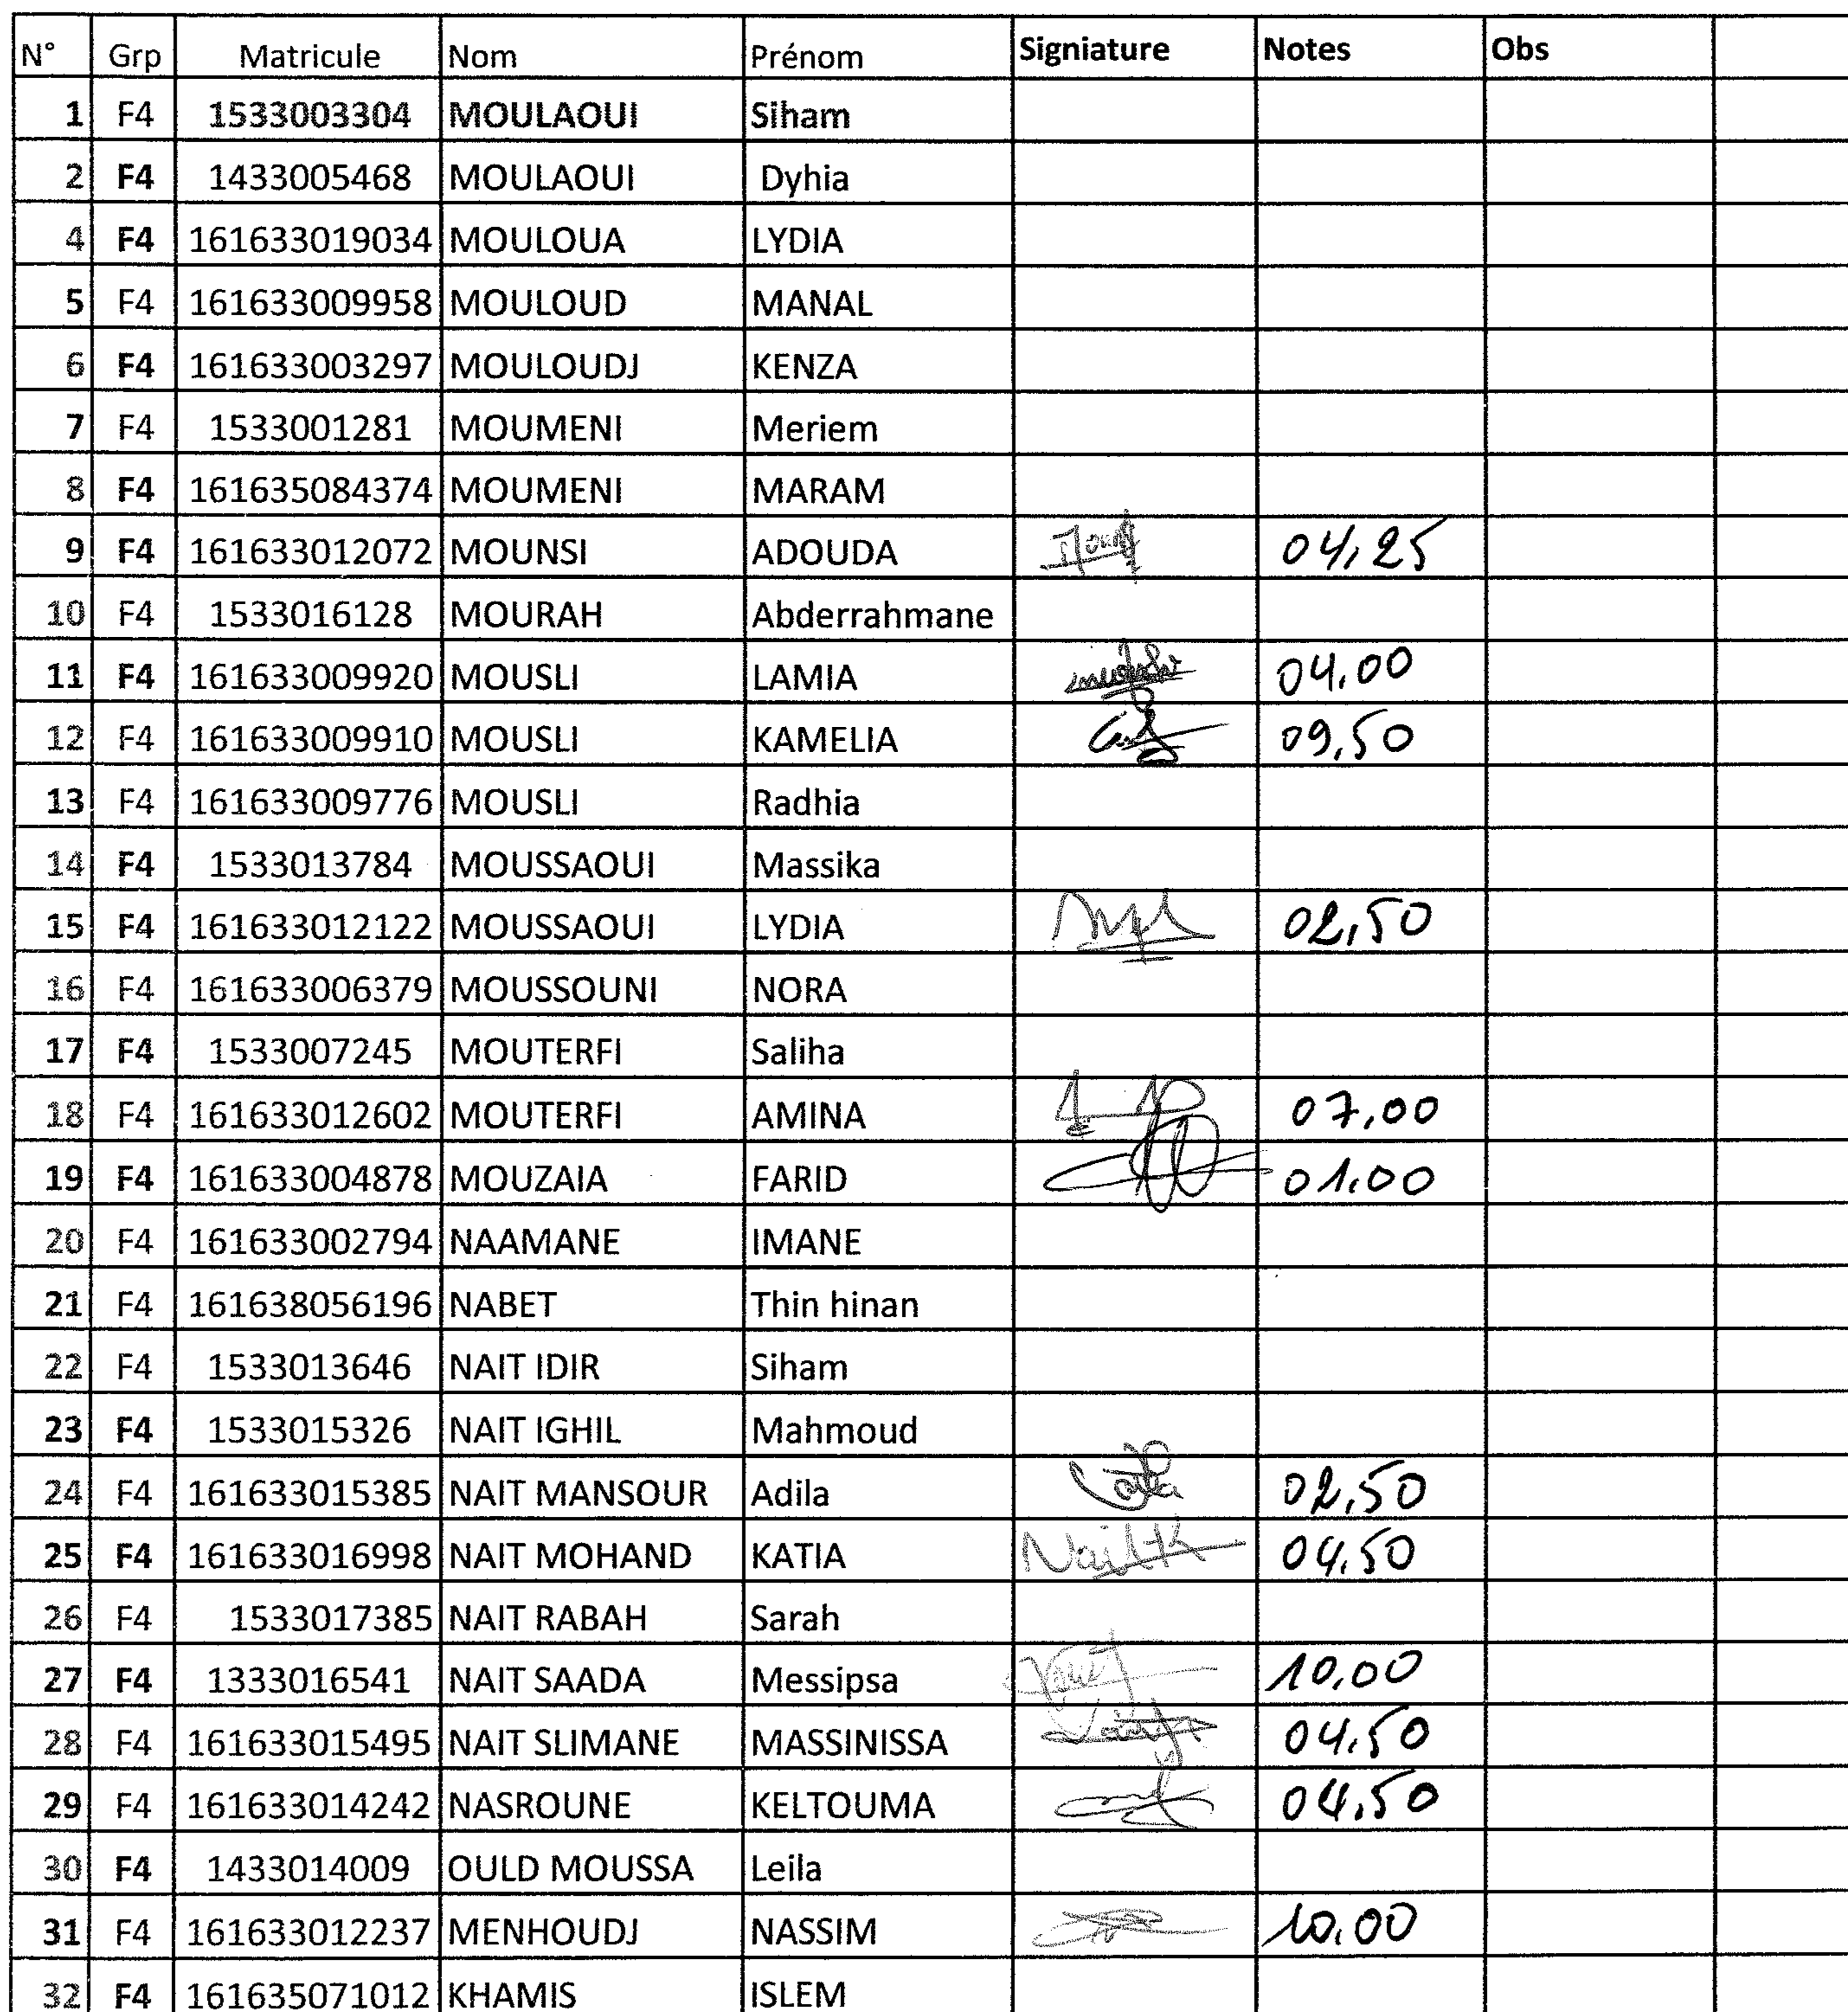 N° Grp Matricule Nom Prénom Signiature Notes Obs
1 F4 1533003304 MOULAOUI Siham
2 F4 1433005468 MOULAOUI Dyhia
4 F4 161633019034 MOULOUA LYDIA
5 F4 161633009958 MOULOUD MANAL
6 F4 161633003297 MOULOUDJ KENZA
7 F4 1533001281 MOUMENI Meriem
8 F4 161635084374 MOUMENI MARAM
9 F4 161633012072 MOUNSI ADOUDA 04,25
10 F4 1533016128 MOURAH Abderrahmane
11 F4 161633009920 MOUSLI LAMIA 04,00
12 F4 161633009910 MOUSLI KAMELIA 09,50
13 F4 161633009776 MOUSLI Radhia
14 F4 1533013784 MOUSSAOUI Massika
15 F4 161633012122 MOUSSAOUI LYDIA 02,50
16 F4 161633006379 MOUSSOUNI NORA
17 F4 1533007245 MOUTERFI Saliha
18 F4 161633012602 MOUTERFI AMINA 07,00
19 F4 161633004878 MOUZAIA FARID 01,00
20 F4 161633002794 NAAMANE IMANE
21 F4 161638056196 NABET Thin hinan
22 F4 1533013646 NAIT IDIR Siham
23 F4 1533015326 NAIT IGHIL Mahmoud
24 F4 161633015385 NAIT MANSOUR Adila 02,50
25 F4 161633016998 NAIT MOHAND KATIA 04,50
26 F4 1533017385 NAIT RABAH Sarah
27 F4 1333016541 NAIT SAADA Messipsa 10,00
28 F4 161633015495 NAIT SLIMANE MASSINISSA 04,50
29 F4 161633014242 NASROUNE KELTOUMA 04,50
30 F4 1433014009 OULD MOUSSA Leila
31 F4 161633012237 MENHOUDJ NASSIM 10,00
32 F4 161635071012 KHAMIS ISLEM